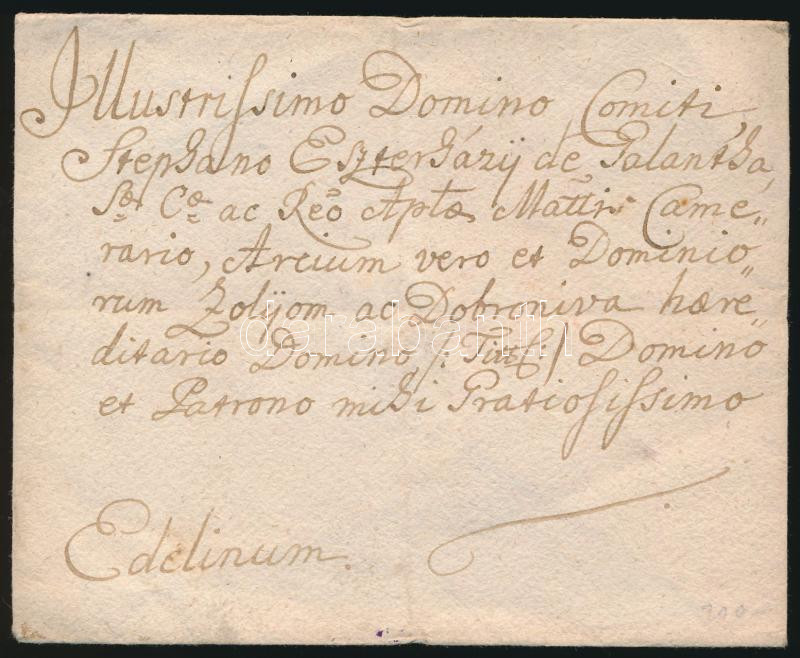 Illustrissimo Domino Comiti
Stephano Eszterházij de Galantha,
Sae Cae ac Reo Aptae Mattis Came„
rario, Arcium vero et Dominio„
rum Zolijom ac Dobroniva hære„
ditario Domino /: Titt /: Domino
et Patrono mihi Gratiosissimo
Edelinum.
darabanth
200